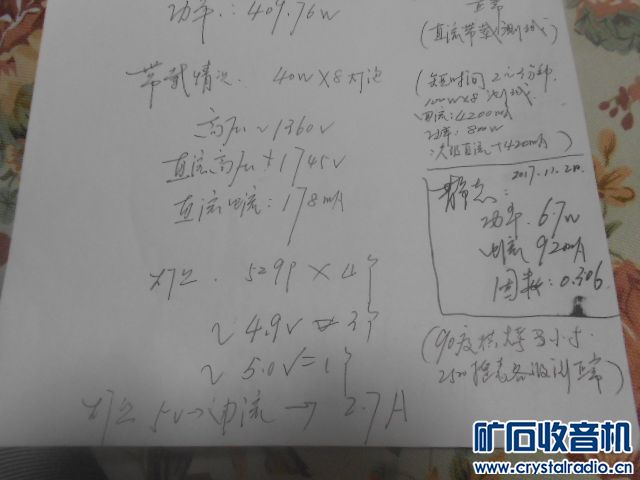 功率: 409.76w
带载情况. 40w×8灯泡
高压~1360v
直流高压+1745v
直流电流: 178mA
灯丝. 5.29v×4
~4.9v=3
~5.0v=1
灯丝5v→电流→2.7A
正常
(直流带载测试)
(短时间2-3分钟.
100w×8测试
电流:4200mA
功率:800w
次级直流+420mA)
2017.11.21.
静态:
功率.6.7w
电流920mA
因数:0.306
(90度烘烤
正常)
矿石收音机
www.crystalradio.cn